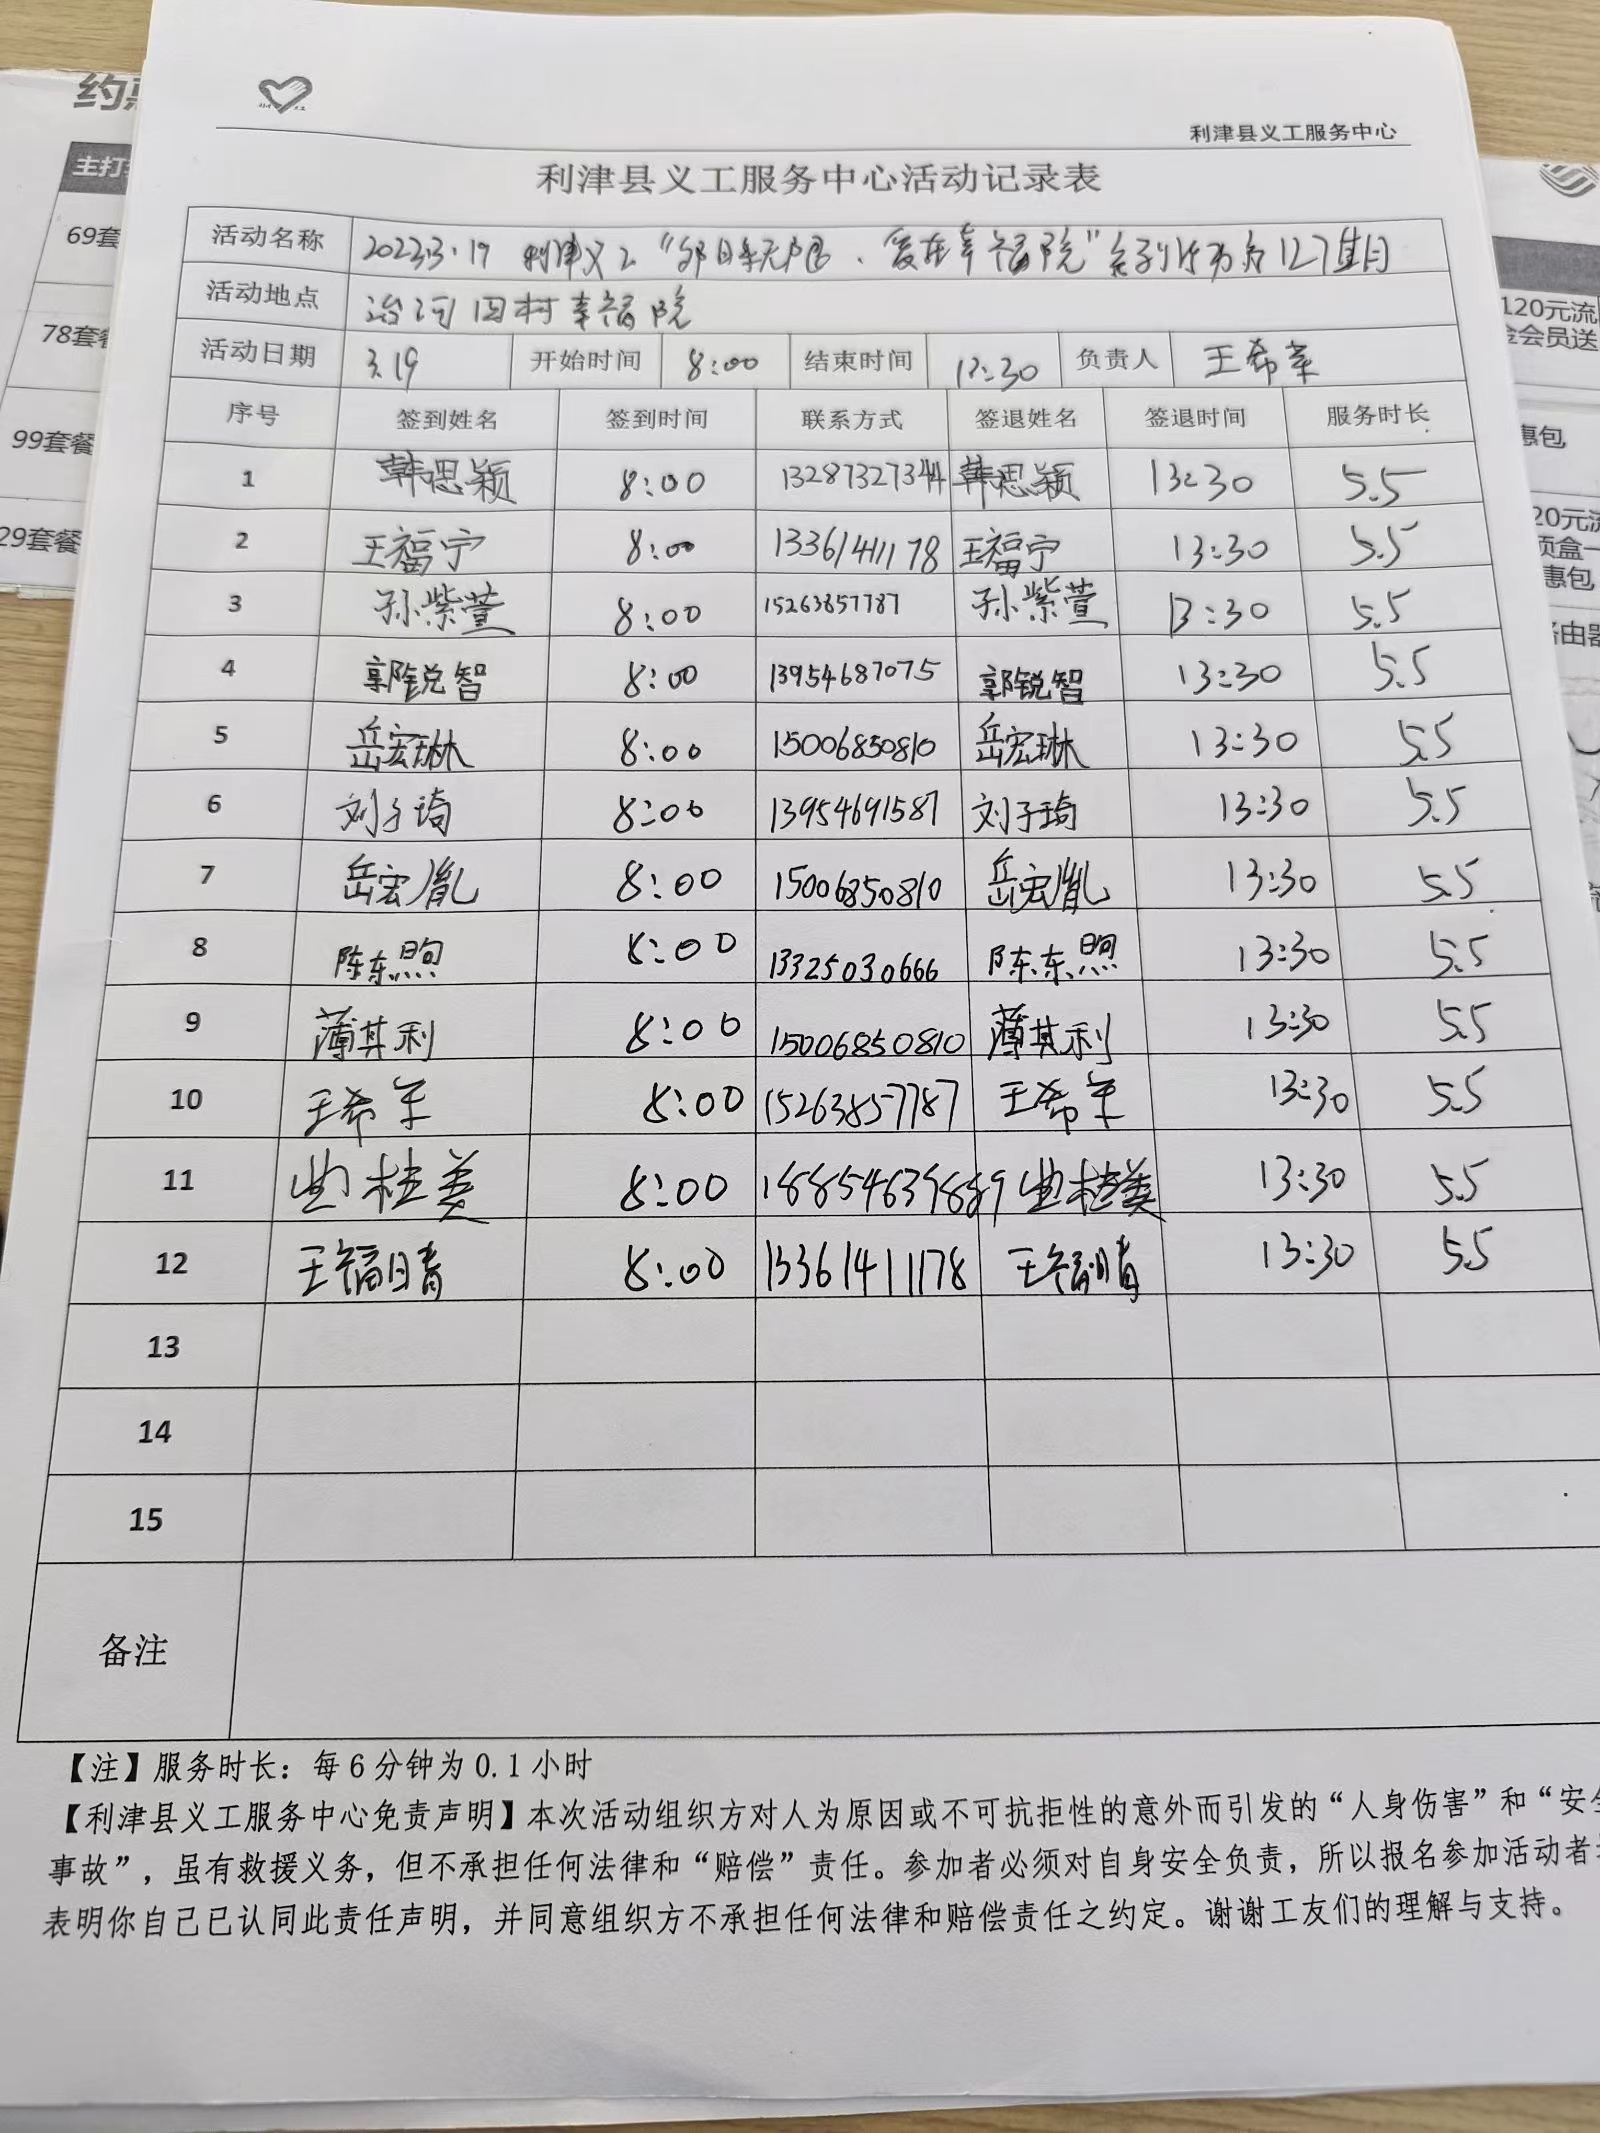 利津县义工服务中心
利津县义工服务中心活动记录表
活动名称 2023.3.19 利津义工“邻里守望、爱在幸福院”系列活动 127
活动地点 治河四村幸福院
活动日期 3.19 开始时间 8:00 结束时间 13:30 负责人 王希军
序号 签到姓名 签到时间 联系方式 签退姓名 签退时间 服务时长
1 韩思颖 8:00 13287327344 韩思颖 13:30 5.5
2 王福宁 8:00 13361411178 王福宁 13:30 5.5
3 孙紫萱 8:00 15263857787 孙紫萱 13:30 5.5
4 郭锐智 8:00 13954687075 郭锐智 13:30 5.5
5 岳宏琳 8:00 15006850810 岳宏琳 13:30 5.5
6 刘子琦 8:00 13954691587 刘子琦 13:30 5.5
7 岳宏胤 8:00 15006850810 岳宏胤 13:30 5.5
8 陈东煦 8:00 13325030666 陈东煦 13:30 5.5
9 薄其利 8:00 15006850810 薄其利 13:30 5.5
10 王希军 8:00 15263857787 王希军 13:30 5.5
11 曲桂美 8:00 18854639889 曲桂美 13:30 5.5
12 王福晴 8:00 13361411178 王福晴 13:30 5.5
13
14
15
备注
【注】服务时长：每6分钟为0.1小时
【利津县义工服务中心免责声明】本次活动组织方对人为原因或不可抗拒性的意外而引发的“人身伤害”和“安全
事故”，虽有救援义务，但不承担任何法律和“赔偿”责任。参加者必须对自身安全负责，所以报名参加活动者
表明你自己已认同此责任声明，并同意组织方不承担任何法律和赔偿责任之约定。谢谢工友们的理解与支持。
主打
69套
78套餐
99套餐
29套餐
120元流
金会员送
惠包
20元流
顶盒一
惠包
路由器